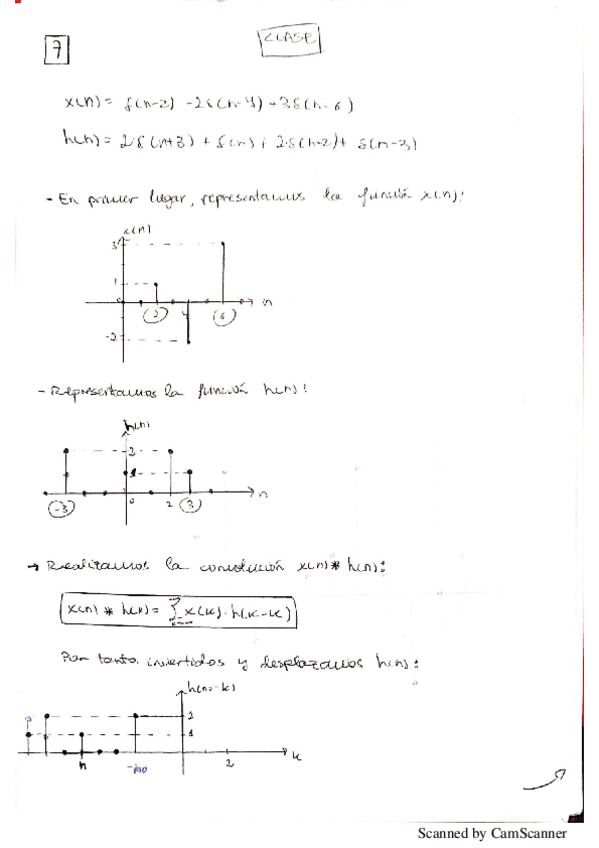 7
CLASE
x(n) = δ(n-2) - 2δ(n-4) + 3δ(n-6)
h(n) = 2·δ(n+3) + δ(n) + 2·δ(n-2) + δ(n-3)
- En primer lugar, representamos la función x(n):
x(n)
3
1
2 4 6 n
-2
- Representamos la función h(n):
h(n)
2
1
-3 0 2 3 n
→ Realizamos la convolución x(n) * h(n):
x(n) * h(n) = Σ x(k) · h(n-k)
Por tanto, invertidos y desplazamos h(n):
h(n-k)
2
1
n 2 k
Scanned by CamScanner